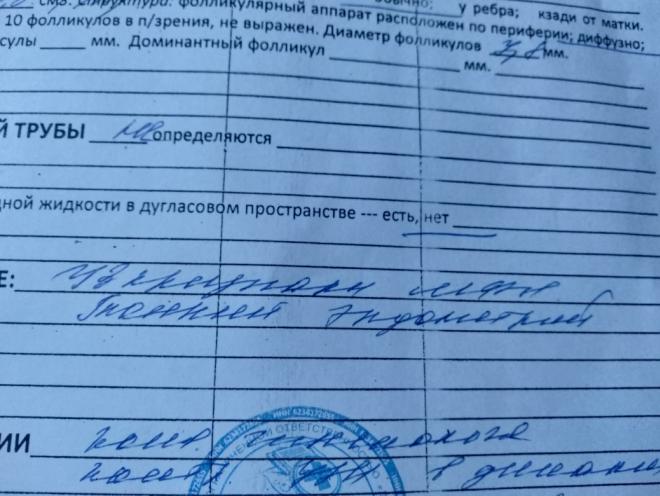 см3. Структура: фолликулярный аппарат расположен по периферии; диффузно;
у ребра; кзади от матки.
10 фолликулов в п/зрения, не выражен. Диаметр фолликулов мм.
сулы ______ мм. Доминантный фолликул ____________ мм.
Й ТРУБЫ не определяются
дной жидкости в дугласовом пространстве --- есть, нет
Е: УЗ признаки
Тонкий эндометрий
ИИ конс. гинеколога
УЗИ в динами